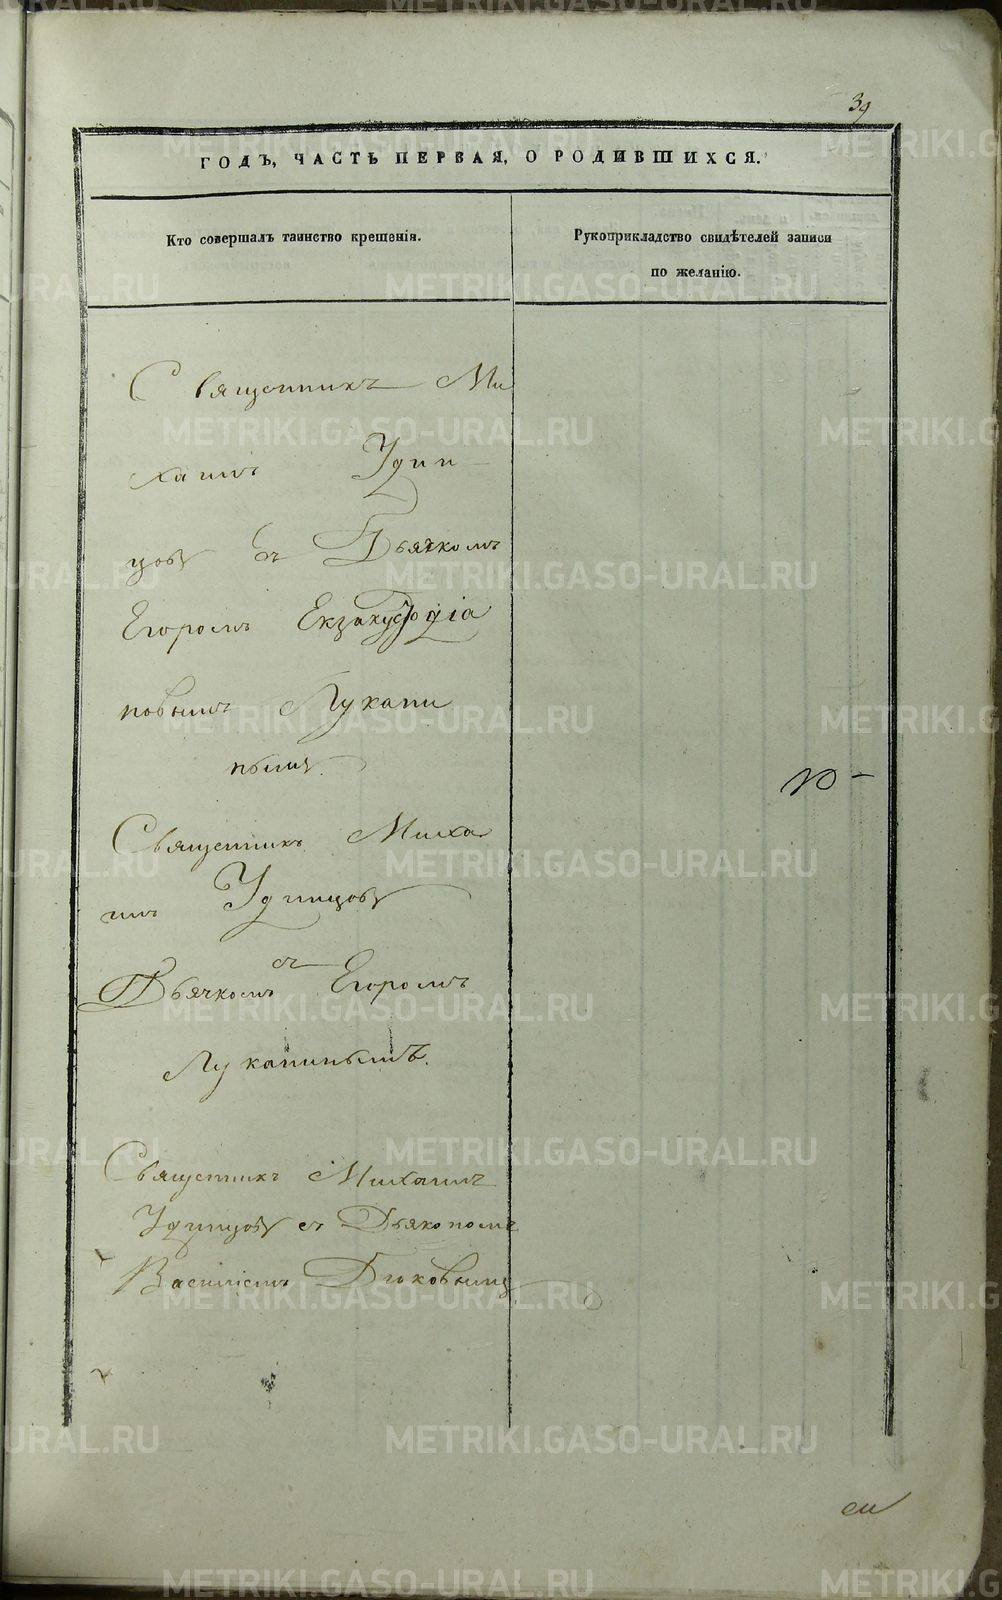 39
ГОДЪ, ЧАСТЬ ПЕРВАЯ, О РОДИВШИХСЯ.
Кто совершалъ таинство крещенія.
Рукоприкладство свидѣтелей записи
по желанію.
Священникъ Ми
хаилъ Удин
цовъ съ Дьячкомъ
Егоромъ
новымъ Лукани
нымъ.
Священникъ Миха
илъ Удинцовъ
съ
Дьячкомъ Егоромъ
Луканинымъ.
Священникъ Михаилъ
Удинцовъ съ Дьякономъ
Василіемъ
METRIKI.GASO-URAL.RU